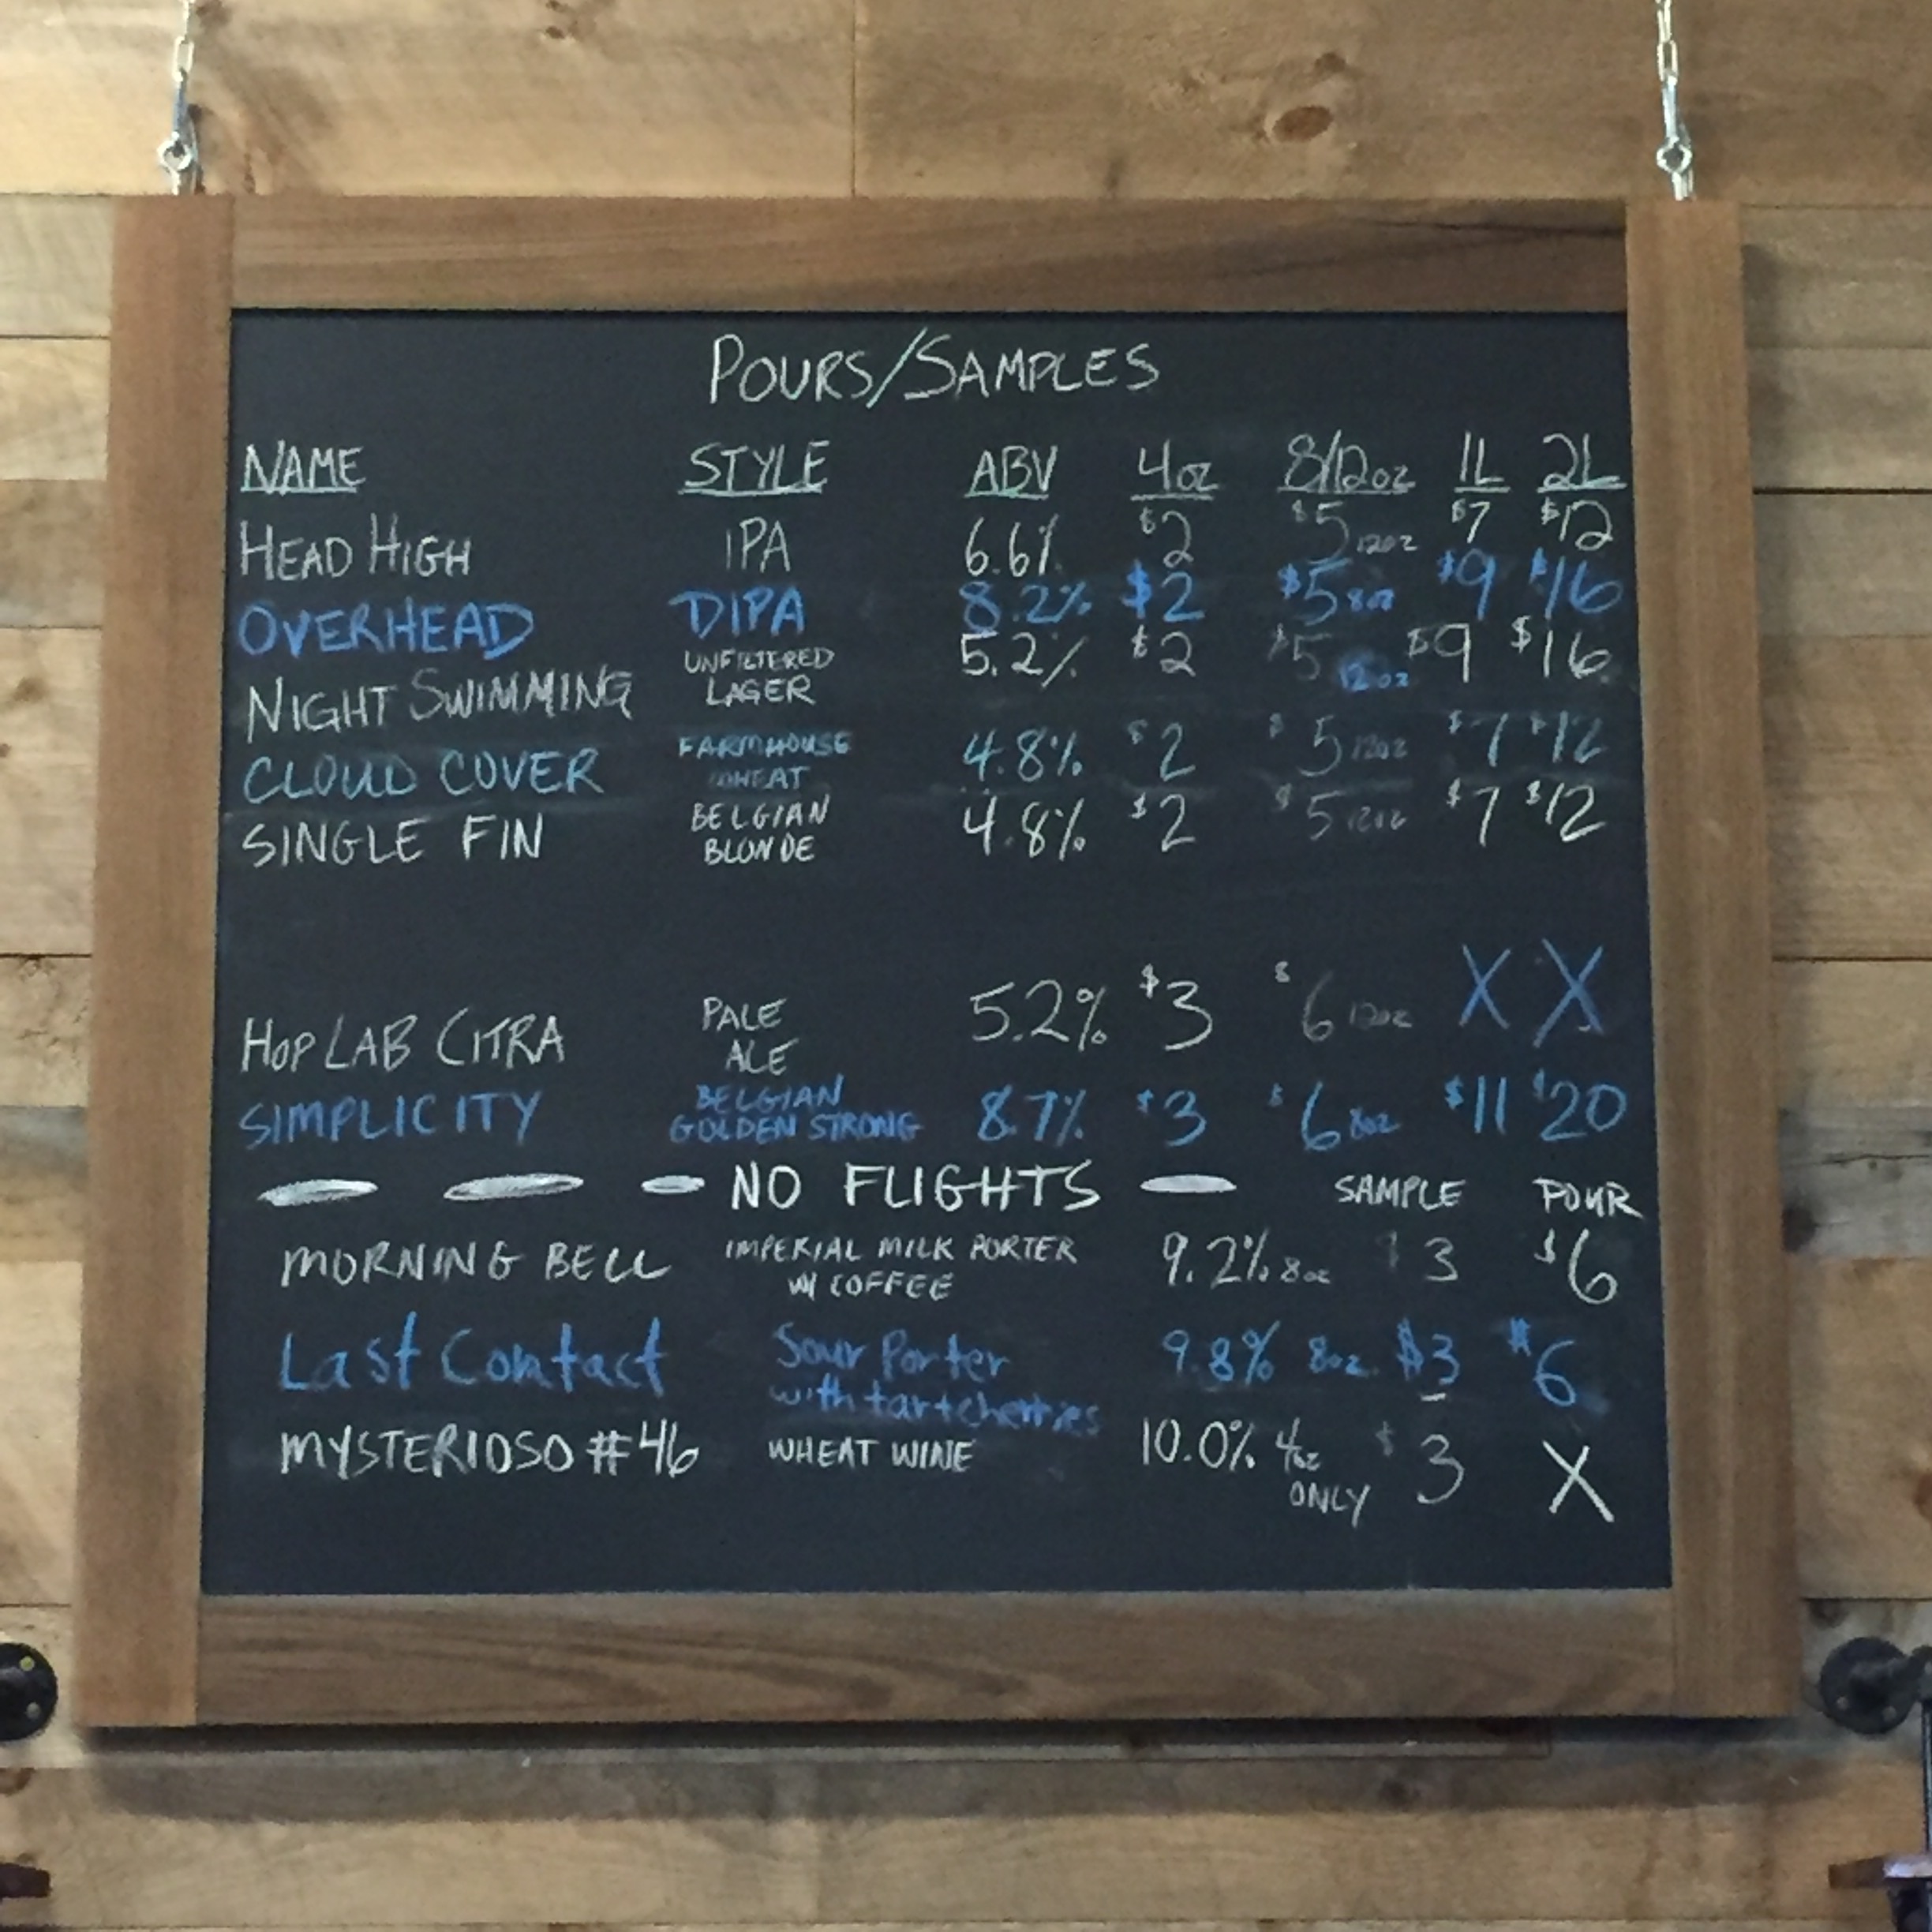 POURS/SAMPLES
NAME STYLE ABV 4oz 8/12oz 1L 2L
HEAD HIGH IPA 6.6% $2 $5 12oz $7 $12
OVERHEAD DIPA 8.2% $2 $5 8oz $9 $16
NIGHT SWIMMING UNFILTERED LAGER 5.2% $2 $5 12oz $9 $16
CLOUD COVER FARMHOUSE WHEAT 4.8% $2 $5 12oz $7 $12
SINGLE FIN BELGIAN BLONDE 4.8% $2 $5 12oz $7 $12
HOP LAB CITRA PALE ALE 5.2% $3 $6 12oz X X
SIMPLICITY BELGIAN GOLDEN STRONG 8.7% $3 $6 8oz $11 $20
NO FLIGHTS SAMPLE POUR
MORNING BELL IMPERIAL MILK PORTER W/ COFFEE 9.2% 8oz $3 $6
Last Contact Sour Porter with tart cherries 9.8% 8oz. $3 $6
MYSTERIOSO #46 WHEAT WINE 10.0% 4oz ONLY $3 X